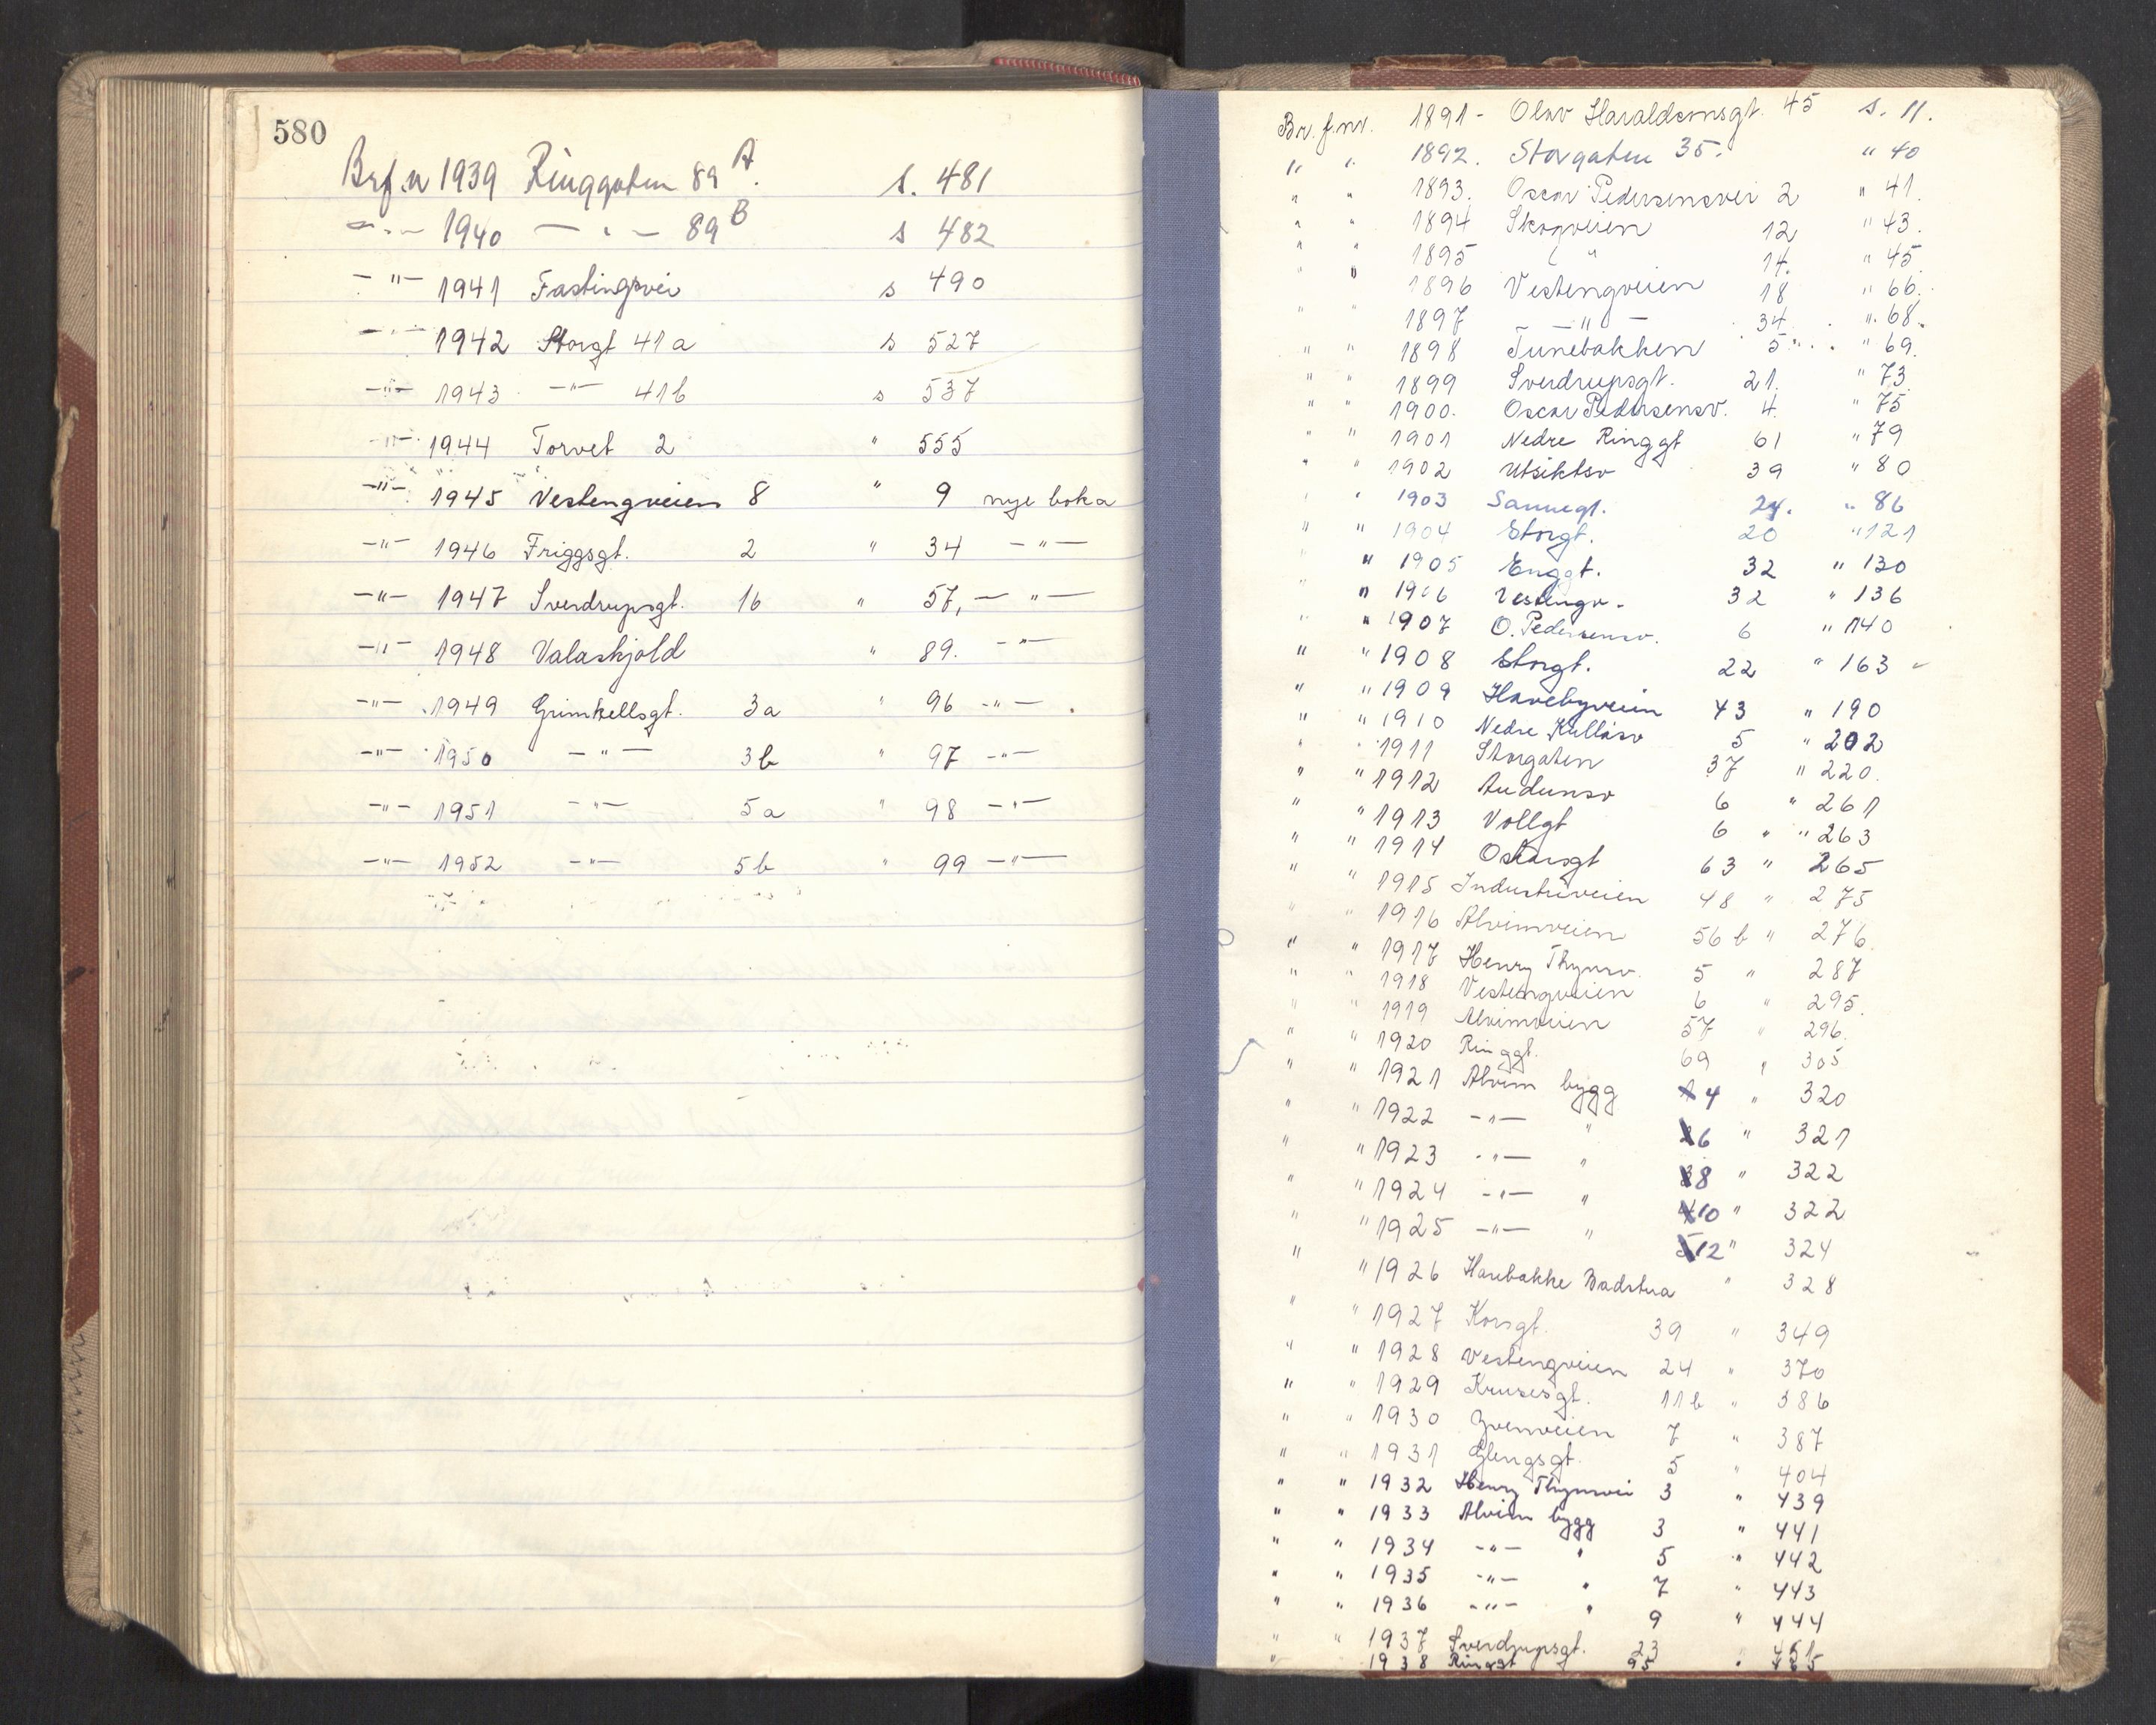 580
Brf.nr 1939 Ringgaten 89 A. s. 481
— " — 1940 — " — 89 B s 482
— " — 1941 Fastingsvei s 490
— " — 1942 Storgt 41a s 527
— " — 1943 — " — 41b s 537
— " — 1944 Torvet 2 " 555
— " — 1945 Vestengveien 8 " 9 nye boka
— " — 1946 Friggsgt. 2 " 34 — " —
— " — 1947 Sverdrupsgt. 16 " 57, — " —
— " — 1948 Valaskjold " 89. — " —
— " — 1949 Grimkellsgt. 3a " 96 — " —
— " — 1950 — " — 3b " 97 — " —
— " — 1951 — " — 5a " 98 — " —
— " — 1952 — " — 5b " 99 — " —
Br.f.nr. 1891 - Olav Haraldsonsgt. 45 s. 11.
" " 1892. Storgaten 35. " 40
" " 1893. Oscar Pedersensvei 2 " 41.
" " 1894 Skogveien 12 " 43.
" " 1895 " 14. " 45.
" " 1896 Vestengveien 18 " 66.
" " 1897 — " — 34 " 68.
" " 1898 Tunebakken 5 " 69.
" " 1899 Sverdrupsgt. 21. " 73.
" " 1900. Oscar Pedersensv. 4. " 75
" " 1901 Nedre Ringgt 61 " 79
" " 1902 Utsiktsv 39 " 80
" " 1903 Sannegt. 24. " 86
" " 1904 Storgt. 20 " 121
" " 1905 Enggt. 32 " 130
" " 1906 Vestengv. 32 " 136
" " 1907 O. Pedersensv. 6 " 140
" " 1908 Storgt. 22 " 163
" " 1909 Havebyveien 43 " 190
" " 1910 Nedre Kullåsv 5 " 202
" " 1911 Storgaten 37 " 220.
" " 1912 Audunsv 6 " 261
" " 1913 Vollgt 6 " " 263
" " 1914 Oscarsgt 63 " 265
" " 1915 Industriveien 48 " 275
" " 1916 Alvimveien 56 b " 276.
" " 1917 Henry Thynsv. 5 " 287
" " 1918 Vestengveien 6 " 295.
" " 1919 Alvimveien 57 " 296.
" " 1920 Ringgt. 69 " 305
" " 1921 Alvim bygg 4 " 320
" " 1922 — " — " 6 " 321
" " 1923 — " — " 8 " 322
" " 1924 — " — " 10 " 322
" " 1925 — " — " 12 " 324
" " 1926 Hanebakke Badstua " 328
" " 1927 Korsgt. 39 " 349
" " 1928 Vestengveien 24 " 370
" " 1929 Krusesgt. 11b " 386
" " 1930 Yvenveien 7 " 387
" " 1931 Glengsgt. 5 " 404
" " 1932 Henry Thynsvei 3 " 439
" " 1933 Alvim bygg 3 " 441
" " 1934 — " — " 5 " 442
" " 1935 — " — " 7 " 443
" " 1936 — " — " 9 " 444
" " 1937 Sverdrupsgt. 23 " 451
" " 1938 Ringgt 95 "